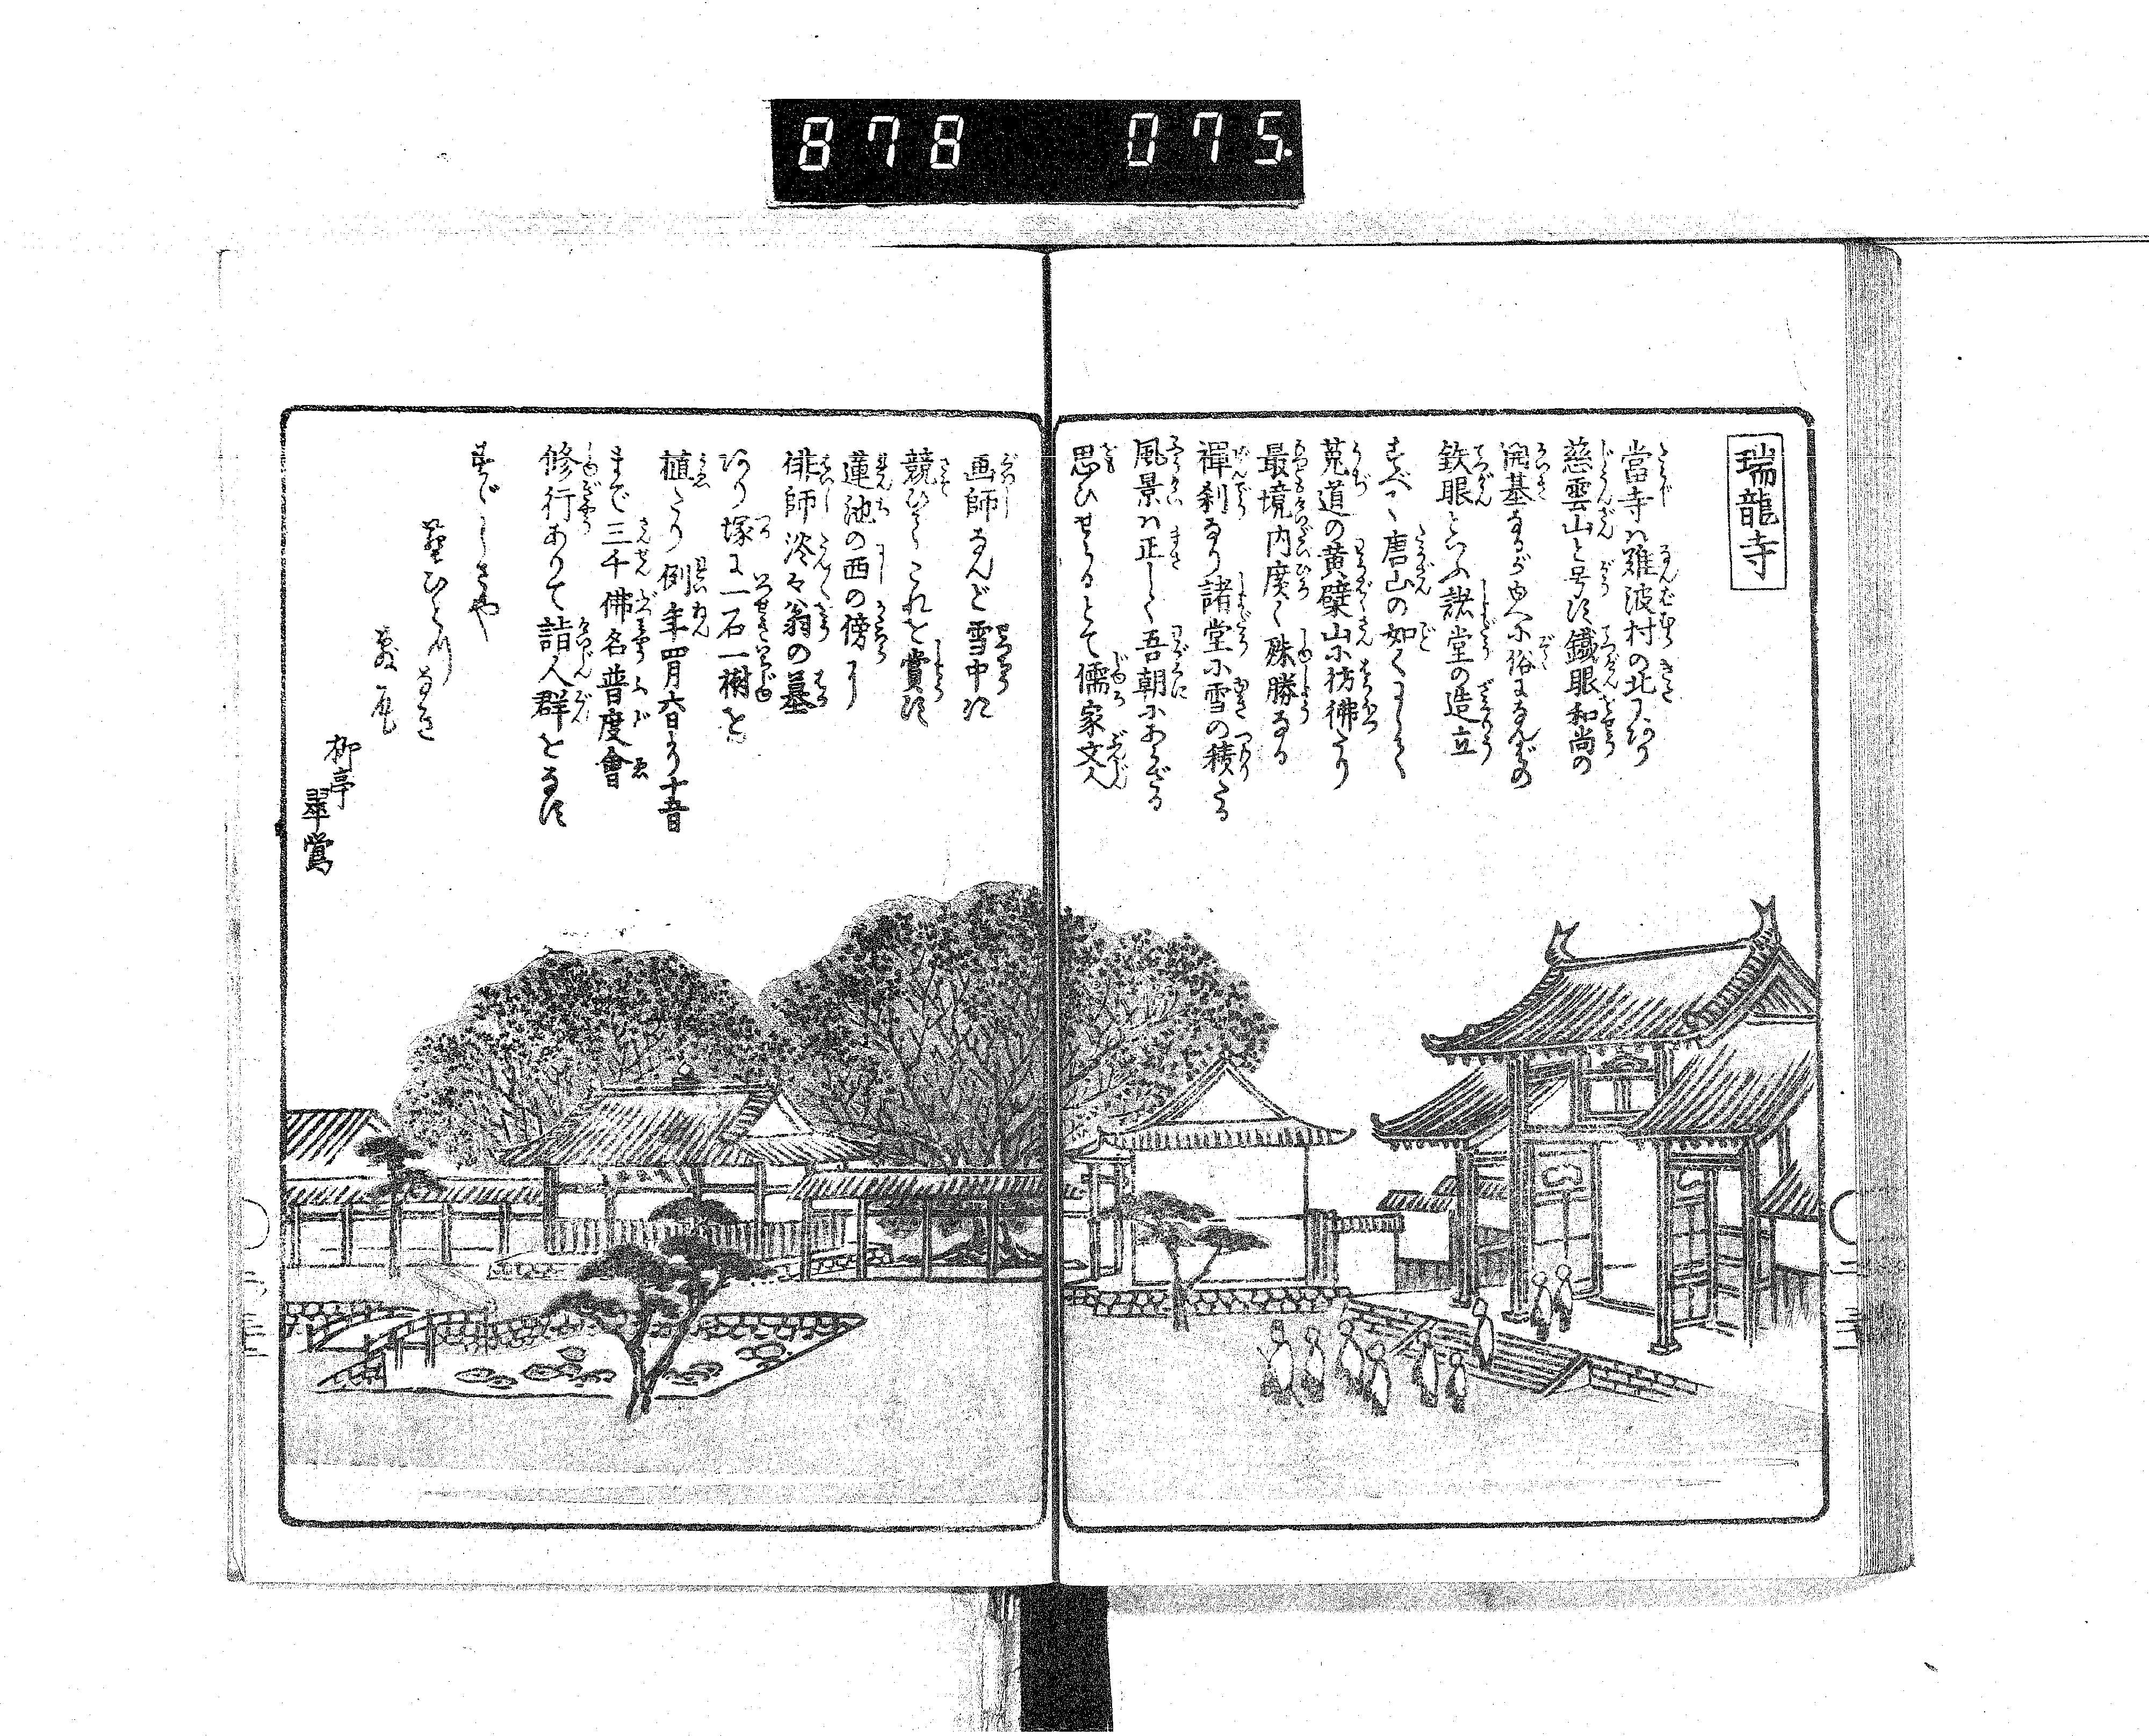 878 075.
瑞龍寺
當寺ハ難波村の北ニあり
慈雲山と号す鐵眼和尚の
開基なるが由へに俗になんばの
鉄眼といふ諸堂の造立
すべて唐山の如くにして
莵道の黄檗山に彷彿たり
最境内廣く殊勝なる
禅刹なり諸堂に雪の積たる
風景ハ正しく吾朝にあらざる
思ひせらるとて儒家文人
画師なんど雪中に
競ひてこれを賞す
蓮池の西の傍に
俳師淡々翁の墓
あり塚に一石一樹を
植たり例年四月六日より十五日
まで三千佛名普度會
修行ありて詣人群をなす
すゞしさや
ひとつ
なき
柳亭
翠鶯